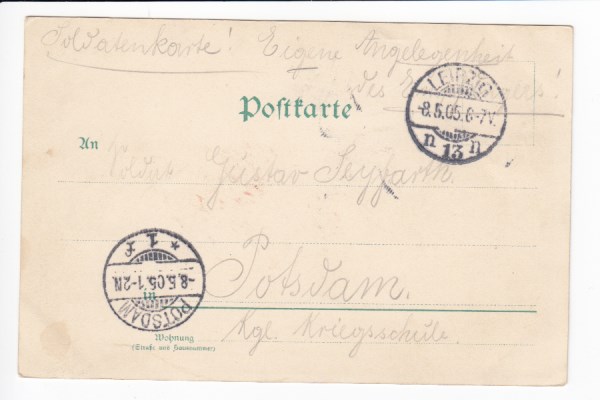 Soldatenkarte! Eigene Angelegenheit
des Empfängers!
Postkarte
LEIPZIG
-8.5.05.6-7V.
n 13 n
An
Soldat Gustav Seyfarth.
* 1. f
-8.5.05.1-2N.
POTSDAM
in
Potsdam.
Kgl. Kriegsschule.
Wohnung
(Straße und Hausnummer)